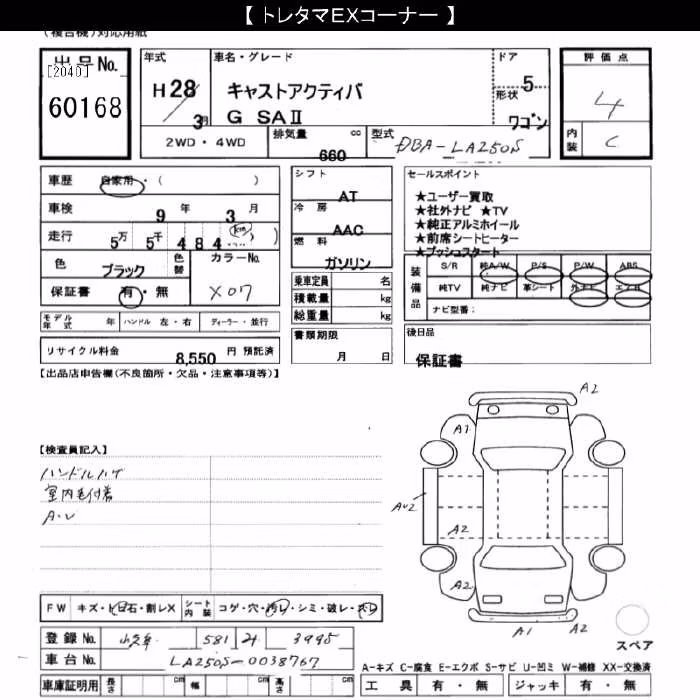 【 トレタマEXコーナー 】
(複合機)対応用紙
出品No.
[2040]
60168
年式
H 28 / 3月
車名・グレード
キャストアクティバ
G SAⅡ
ドア
5
形状
ワゴン
評価点
4
内装
C
2WD・4WD
排気量
660 cc
型式
DBA-LA250S
車歴
自家用・( )
車検
9 年 3 月
走行
5万 5千 4 8 4 (km)
色
ブラック
色替
カラーNo.
X07
保証書
有・無
シフト
AT
冷房
AAC
燃料
ガソリン
乗車定員 名
積載量 kg
総重量 kg
セールスポイント
★ユーザー買取
★社外ナビ ★TV
★純正アルミホイール
★前席シートヒーター
★プッシュスタート
装備品
S/R 純A/W P/S P/W ABS
純TV 純ナビ 革シート 外ナビ エアB
ナビ型番：
モデル年式 年 ハンドル 左・右 ディーラー・並行
リサイクル料金 8,550 円 預託済
書類期限
月 日
後日品
保証書
【出品店申告欄(不良箇所・欠品・注意事項等)】
【検査員記入】
ハンドルハゲ
室内毛付着
A・U
A2
A1
AU2
A2
A2
A1
A2
スペア
FW キズ・ト飛石・割レX シート内装 コゲ・穴・汚レ・シミ・破レ・スレ
登録No. 581 3995
車台No. LA250S-0038767
車庫証明用 長さ cm 幅 cm 高さ cm
A-キズ C-腐食 E-エクボ S-サビ U-凹ミ W-補修 XX-交換済
工具 有・無 ジャッキ 有・無